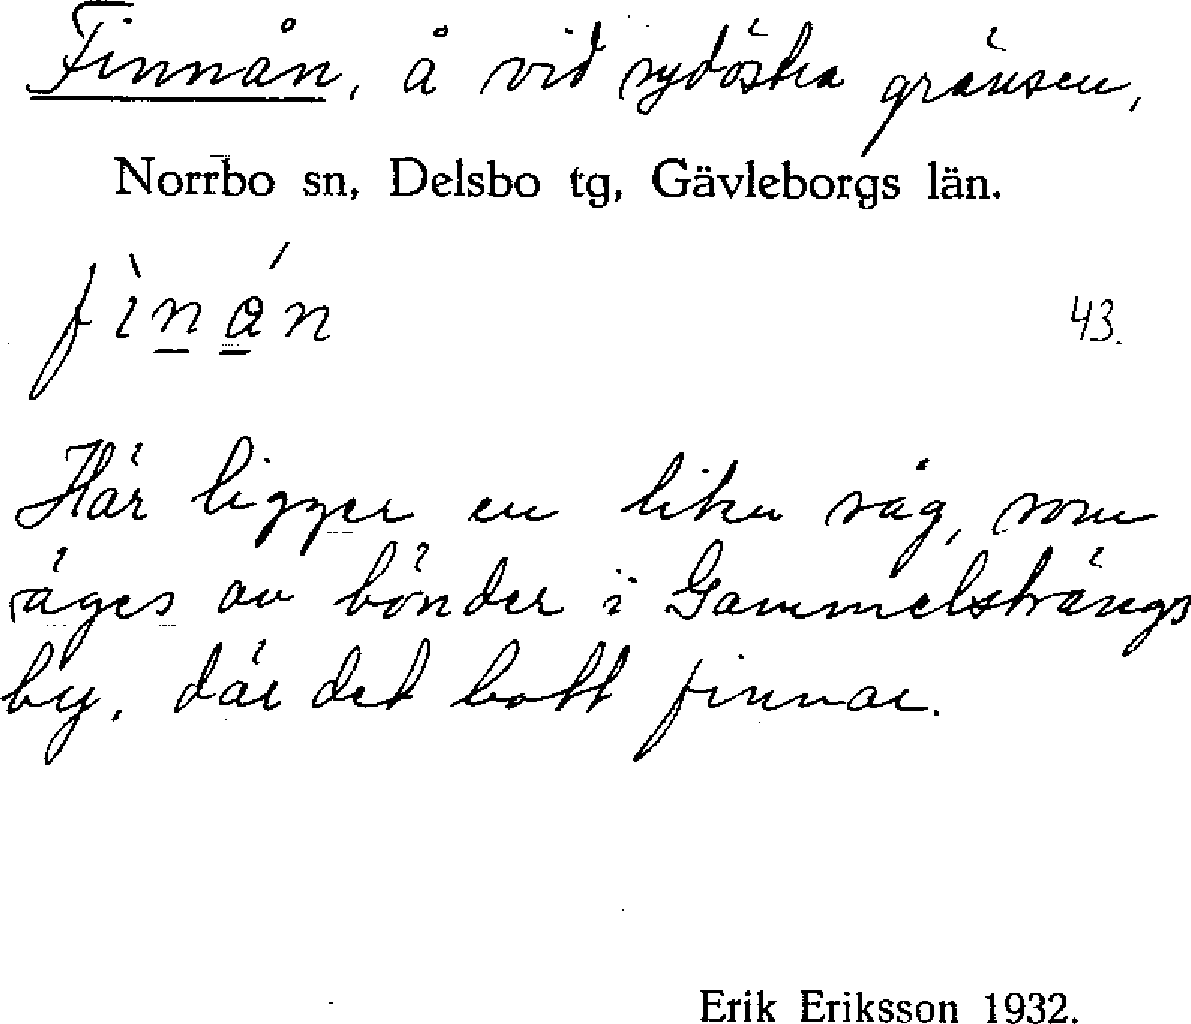 Finnån, å vid sydöstra gränsen,
Norrbo sn, Delsbo tg, Gävleborgs län.
43.
Här ligger en liten såg, som
äges av bönder i Gammelsträngs
by, där det bott finnar.
Erik Eriksson 1932.